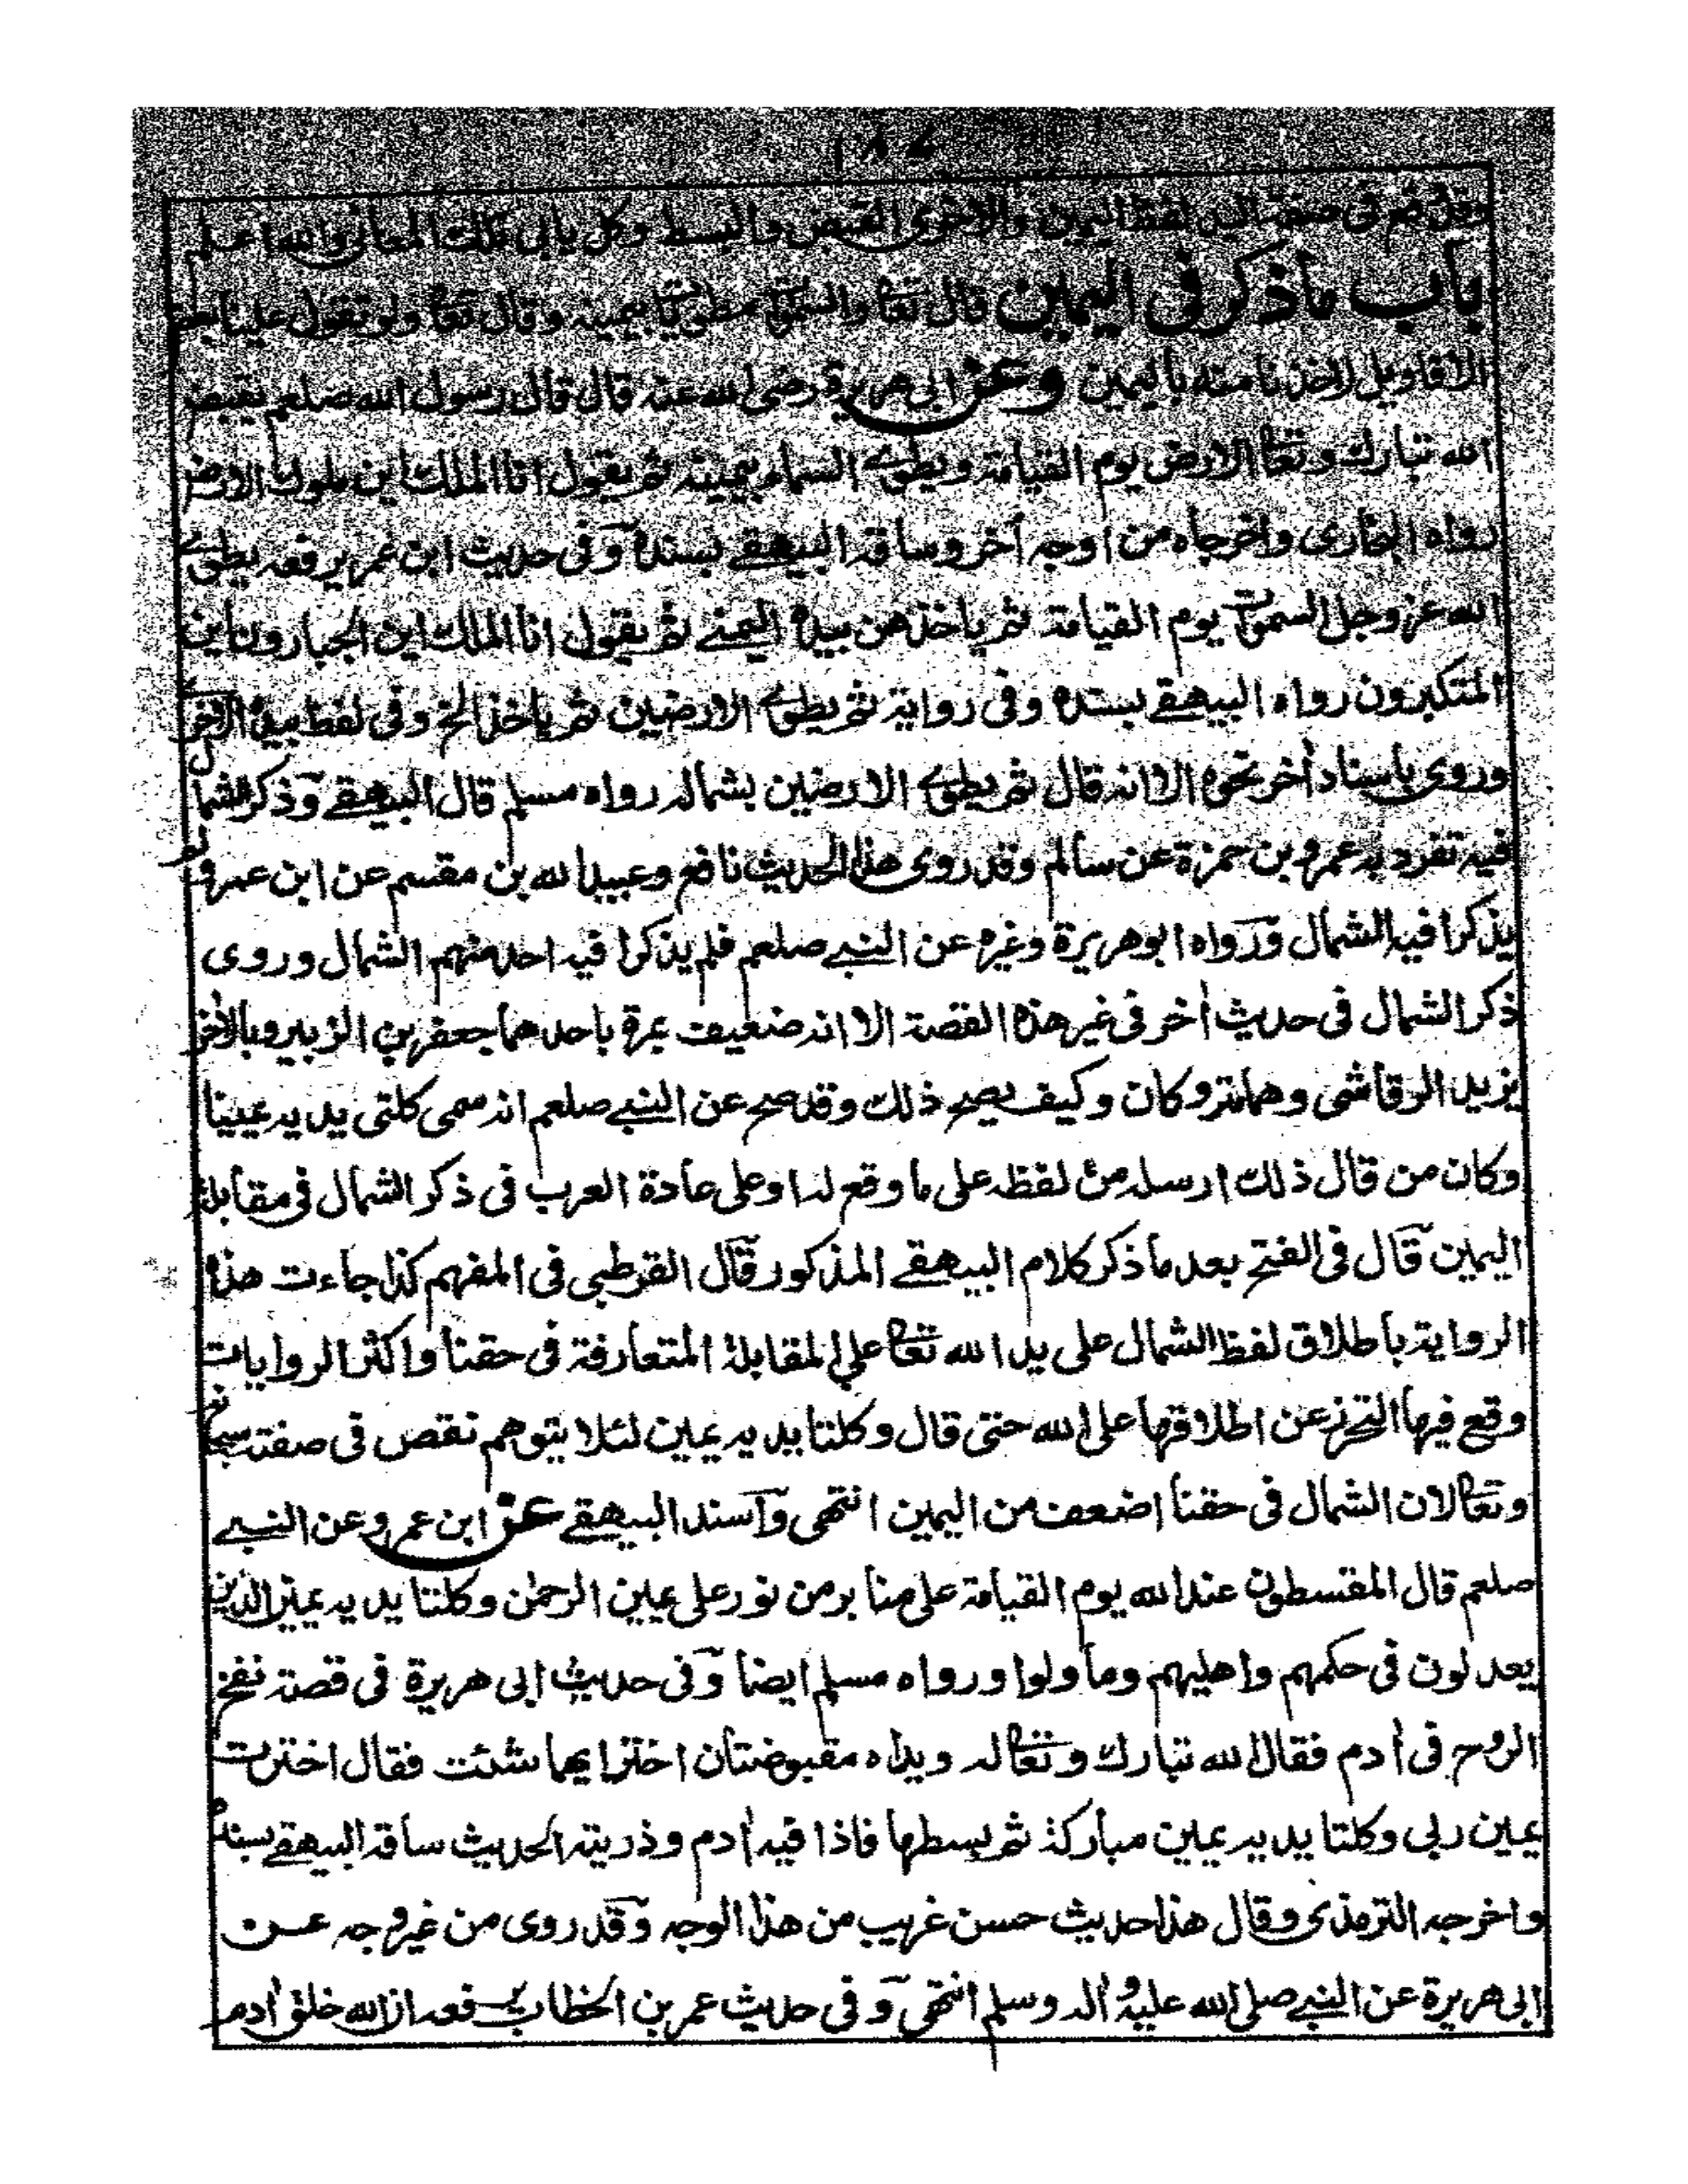 وقد مر فى صفة اليد لفظ اليمين والاخرى القبض والبسط وكل يابى تلك المعانى والله اعلم
باب ماذكر فى اليمين قال تعا والسموٰت مطويّات بيمينه وقال تعا ولو تقول علينا بعض
الاقاويل لاخذنا منه باليمين وعن ابى هريرة رضى الله عنه قال قال رسول الله صلعم يقبض
الله تبارك وتعا الارض يوم القيامة ويطوى السماء بيمينه ثم يقول انا الملك اين ملوك الارض
رواه البخارى واخرجاه من اوجه أخر وساقه البيهقى بسنده وفى حديث ابن عمر يرفعه يطوى
الله عز وجل السموٰت يوم القيامة ثم ياخذهن بيده اليمنى ثم يقول انا الملك اين الجبارون اين
المتكبرون رواه البيهقى بسنده وفى رواية ثم يطوى الارضين ثم ياخذ الخ وفى لفظ بيده الاخرى
وروى باسناد أخر نحوه الا انه قال ثم يطوى الارضين بشماله رواه مسلم قال البيهقى وذكر الشمال
فيه تفرد به عمرو بن حمزة عن سالم وقد روى هذا الحديث نافع وعبيد الله بن مقسم عن ابن عمر ولم
يذكرا فيه الشمال ورواه ابو هريرة وغيره عن النبى صلعم فلم يذكرا فيه احد منهم الشمال وروى
ذكر الشمال فى حديث أخر فى غير هذه القصة الا انه ضعيف بمرة باحدهما جعفر بن الزبير وبالاخر
يزيد الرقاشى وهما متروكان وكيف يصح ذلك وقد صح عن النبى صلعم انه سمى كلتى يديه يمينا
وكان من قال ذلك ارسله من لفظه على ما وقع له او على عادة العرب فى ذكر الشمال فى مقابلة
اليمين قال فى الفتح بعد ماذكر كلام البيهقى المذكور قال القرطبى فى المفهم كذا جاءت هذه
الرواية باطلاق لفظ الشمال على يد الله تعا على المقابلة المتعارفة فى حقنا واكثر الروايات
وقع فيها التحرز عن اطلاقها على الله حتى قال وكلتا يديه يمين لئلا يتوهم نقص فى صفته سبحانه
وتعا لان الشمال فى حقنا اضعف من اليمين انتهى وأسند البيهقى عن ابن عمر وعن النبى
صلعم قال المقسطون عند الله يوم القيامة على منابر من نور على يمين الرحمٰن وكلتا يديه يمين الذين
يعدلون فى حكمهم واهليهم وما ولوا ورواه مسلم ايضا وفى حديث ابى هريرة فى قصة نفخ
الروح فى أدم فقال الله تبارك وتعا له ويداه مقبوضتان اختر ايهما شئت فقال اخترت
يمين ربى وكلتا يديه يمين مباركة ثم بسطها فاذا فيه أدم وذريته الحديث ساقه البيهقى بسنده
واخرجه الترمذى وقال هذا حديث حسن غريب من هذا الوجه وقد روى من غير وجه عن
ابى هريرة عن النبى صلى الله عليه وأله وسلم انتهى وفى حديث عمر بن الخطاب يرفعه ان الله خلق أدم